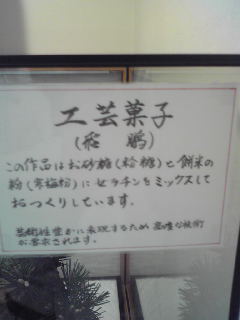 工芸菓子
(飛鵬)
この作品はお砂糖(粉糖)と餅米の
粉(寒梅粉)にゼラチンをミックスして
おつくりしています。
芸術性豊かに表現するため高度な技術
が要求されます。